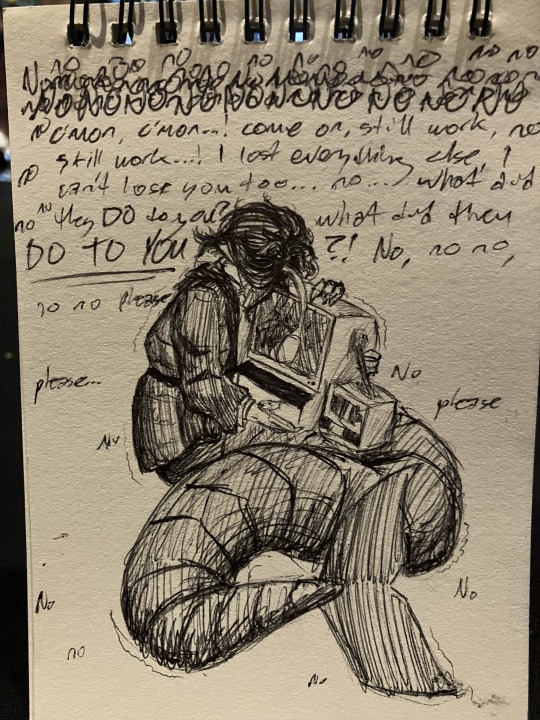 no no no no no no
No no no no no no no no no no no no
no no no no no no no NO NO NO NO NO
no c'mon, c'mon...! come on, still work, no
no still work...! I lost everything else, I
can't lose you too... no.... what did
no no they DO to you? what did they
DO TO YOU ?! No, no no,
no no please
please...
No
please
No
No
No
no
No